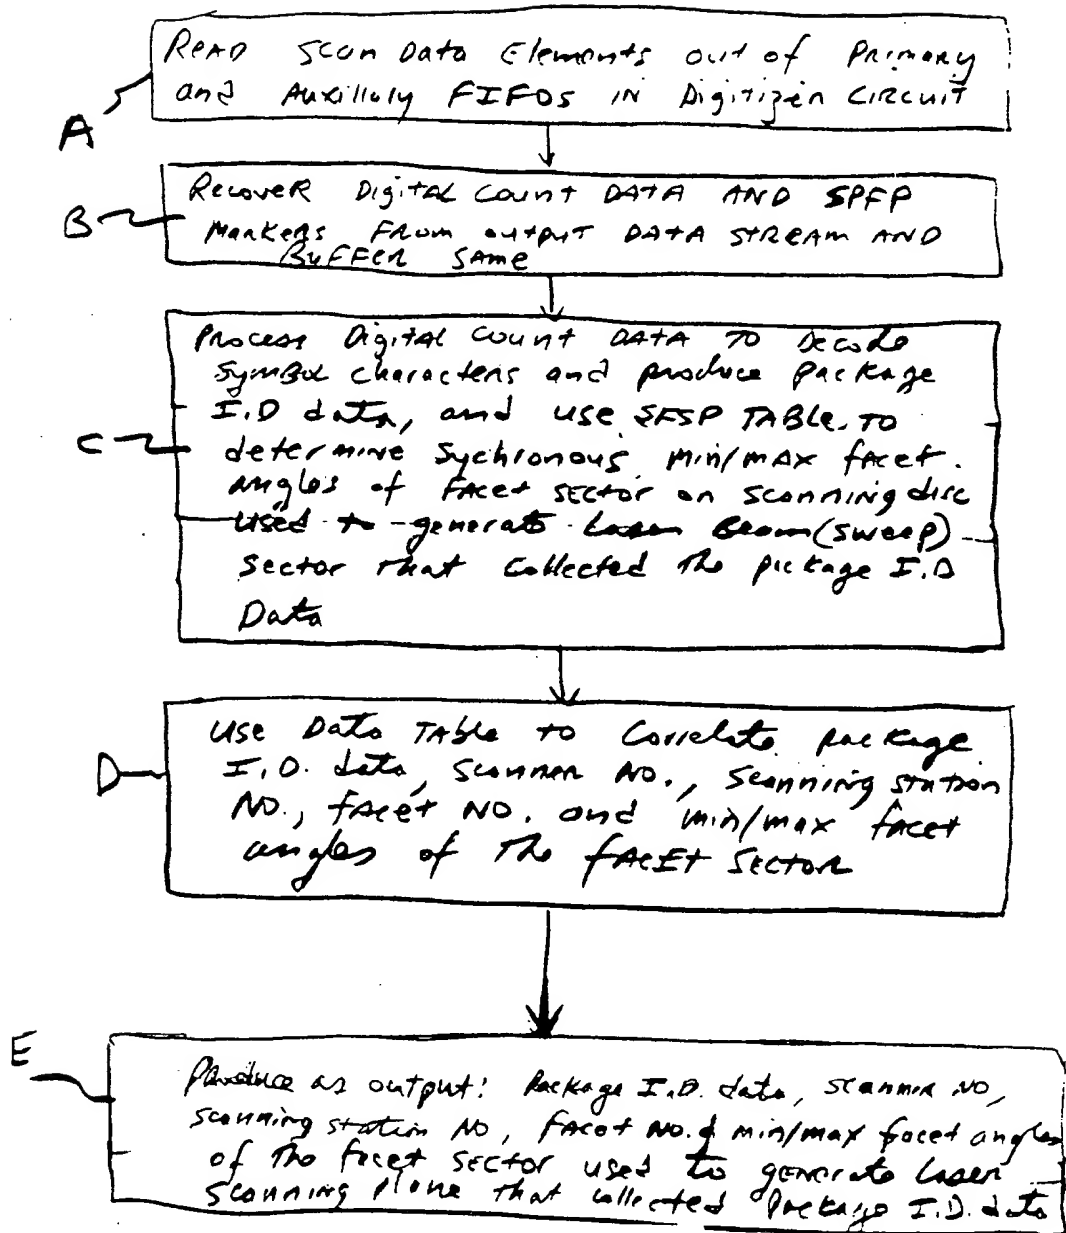 A
READ Scan Data Elements out of Primary
and Auxilluly FIFOs IN Digitizer CIRCUIT
B
Recover Digital Count DATA AND SPFP
Markers From output DATA STREAM AND
Buffer same
C
Process Digital Count DATA TO Decode
Symbol characters and produce package
I.D data, and use SFSP TABLE TO
determine Sychronous min/max facet
angles of facet sector on scanning disc
used to generate laser beam (sweep)
sector that collected the package I.D
Data
D
Use Data Table to Correlate package
I.D. data, scanner NO., scanning station
NO., facet NO. and min/max facet
angles of the facet sector
E
Produce as output: Package I.D. data, scanner NO,
scanning station NO, facet NO. & min/max facet angles
of the facet sector used to generate laser
scanning plane that collected Package I.D. data